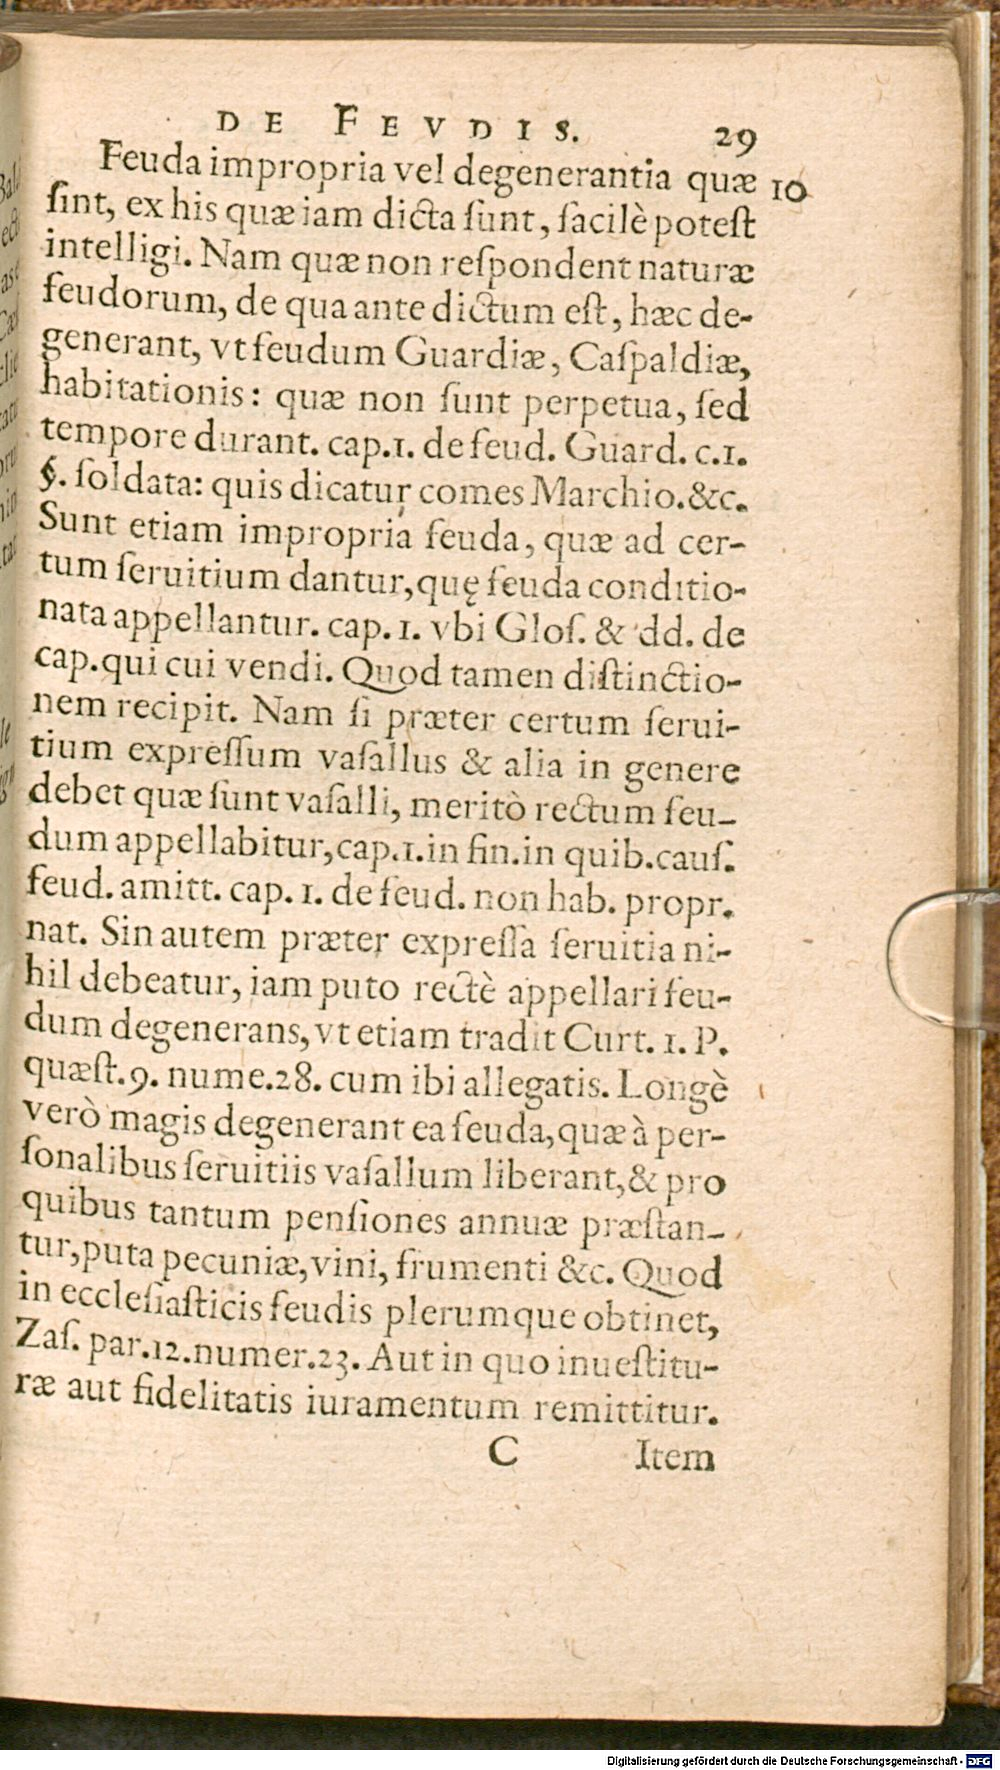 DE FEVDIS. 29
Feuda impropria vel degenerantia quæ 10
ſint, ex his quæ iam dicta ſunt, facilè poteſt
intelligi. Nam quæ non reſpondent naturæ
feudorum, de qua ante dictum eſt, hæc de-
generant, vt feudum Guardiæ, Caſpaldiæ,
habitationis: quæ non ſunt perpetua, ſed
tempore durant. cap.1. de feud. Guard. c.1.
§. ſoldata: quis dicatur comes Marchio.&c.
Sunt etiam impropria feuda, quæ ad cer-
tum ſeruitium dantur, quę feuda conditio-
nata appellantur. cap. 1. vbi Gloſ. & dd. de
cap. qui cui vendi. Quod tamen diſtinctio-
nem recipit. Nam ſi præter certum ſerui-
tium expreſſum vaſallus & alia in genere
debet quæ ſunt vaſalli, meritò rectum feu-
dum appellabitur, cap.1. in fin. in quib. cauſ.
feud. amitt. cap. 1. de feud. non hab. propr.
nat. Sin autem præter expreſſa ſeruitia ni-
hil debeatur, iam puto rectè appellari feu-
dum degenerans, vt etiam tradit Curt. 1. P.
quæſt.9. nume.28. cum ibi allegatis. Longè
verò magis degenerant ea feuda, quæ à per-
ſonalibus ſeruitiis vaſallum liberant, & pro
quibus tantum penſiones annuæ præſtan-
tur, puta pecuniæ, vini, frumenti &c. Quod
in eccleſiaſticis feudis plerumque obtinet,
Zaſ. par.12. numer.23. Aut in quo inueſtitu-
ræ aut fidelitatis iuramentum remittitur.
C Item
Digitalisierung gefördert durch die Deutsche Forschungsgemeinschaft - DFG